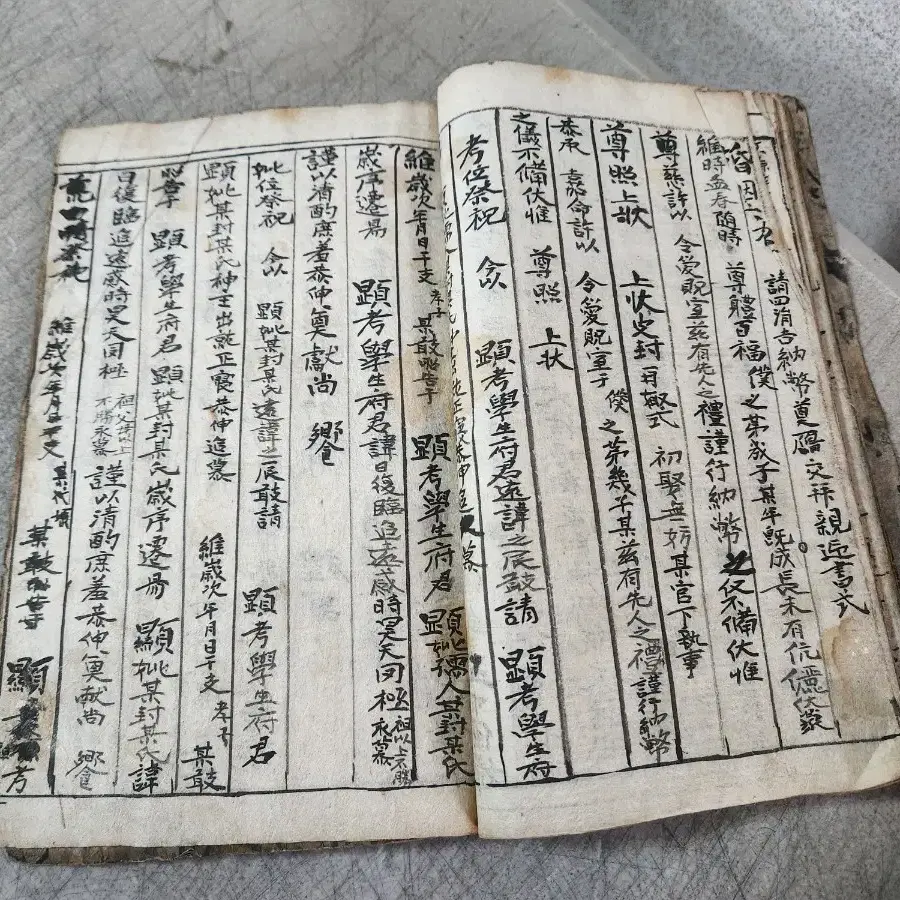 請四消吉納幣奠雁交拜親迎書式
維時孟春隨時 尊體百福僕之弟成子某年旣成長未有伉儷伏蒙
尊慈許以 令愛貺室茲有先人之禮謹行納幣之仪不備伏惟
尊照上狀 上狀皮封 初娶無妨某官下執事
忝承 嘉命許以 令愛貺室子 僕之弟幾子某茲有先人之禮謹行納幣
之儀不備伏惟 尊照 上状
考位祭祝 今以 顯考學生府君遠諱之辰敢請 顯考學生府
維歲次年月日干支 孝子 某敢昭告于 顯考學生府君 顯妣孺人某封某氏
歲序遷易 顯考學生府君諱日復臨追遠感時昊天罔極 祖以上不勝永慕
謹以清酌庶羞恭伸奠獻尚 饗
妣位祭祝 今以 顯妣某封某氏遠諱之辰敢請 顯考學生府君
顯妣某封某氏神主出就正寢恭伸追慕 維歲次年月日干支 孝子 某敢
昭告于 顯考學生府君 顯妣某封某氏歲序遷易 顯妣某封某氏諱
日復臨追遠感時昊天罔極 祖父母以上不勝永慕 謹以清酌庶羞恭伸奠献尚 饗
維歲次年月日干支 某敢昭告于 顯考